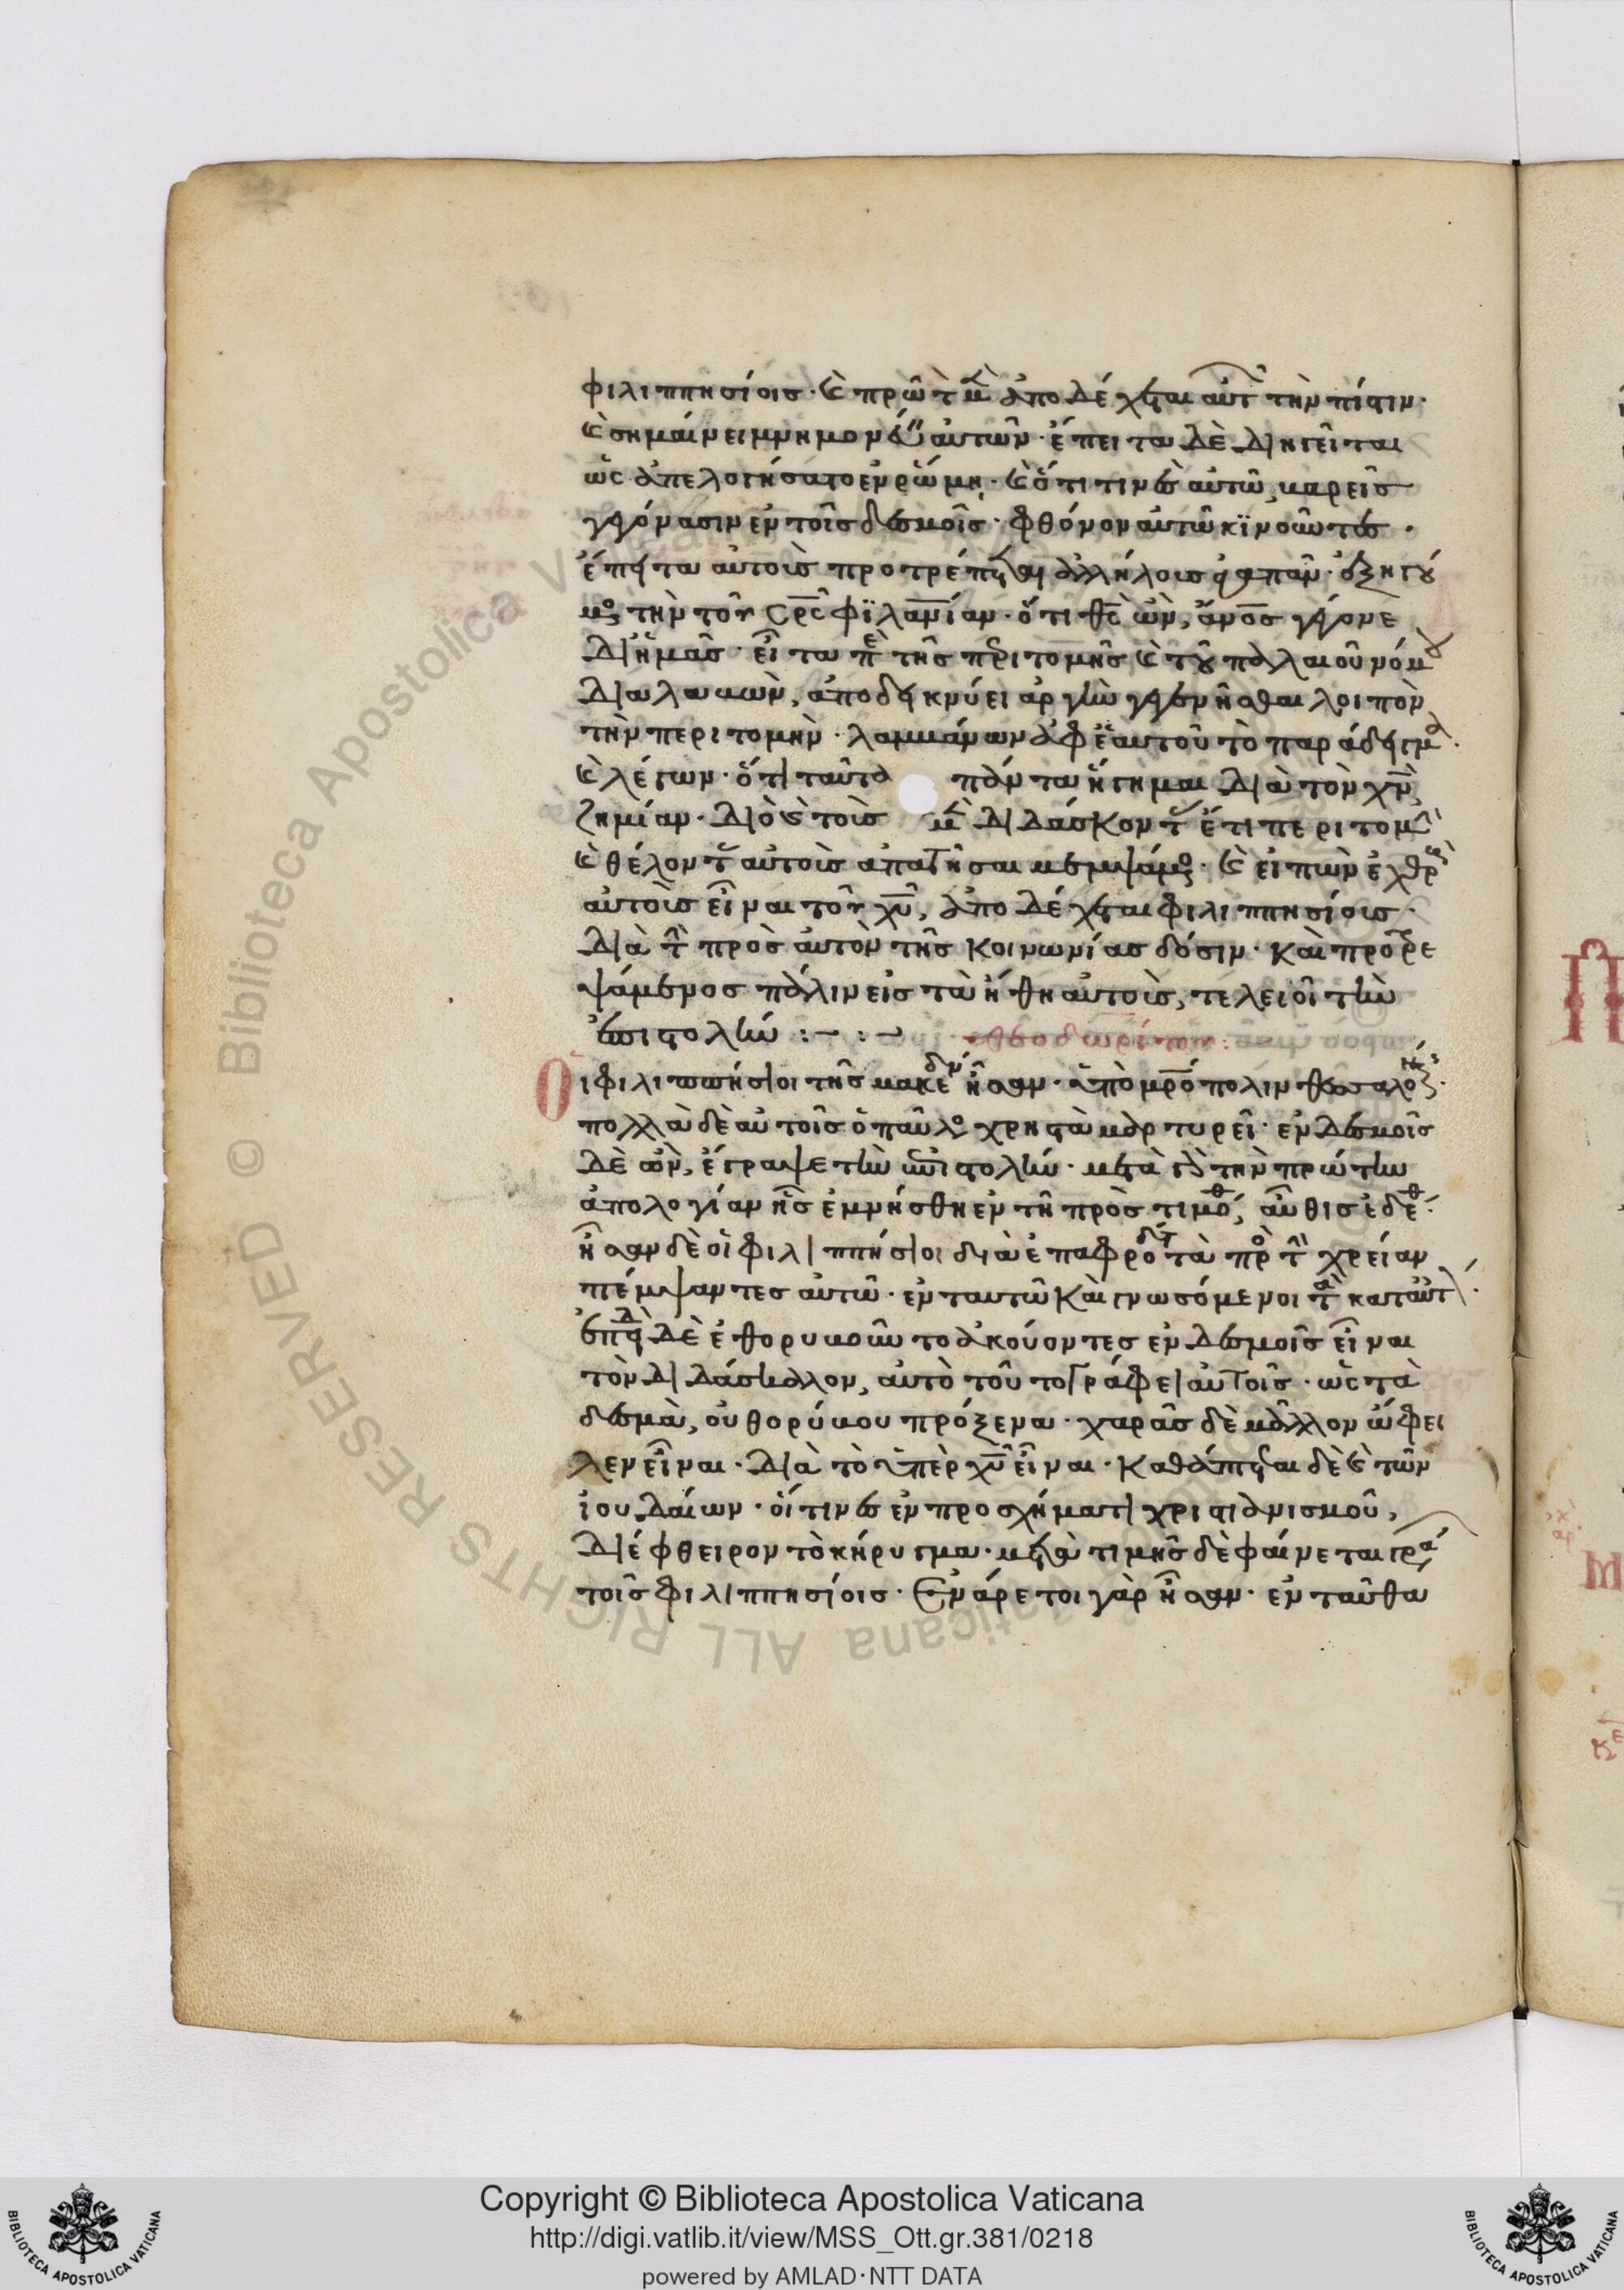 φιλιππησίοις· καὶ πρῶτον μὲν ἀποδέχεται αὐτῶν τὴν πίστιν·
καὶ σημαίνει μνημονεύειν αὐτῶν· ἔπειτα δὲ διηγεῖται
ὡς ἀπελογήσατο ἐν ῥώμη· καὶ ὅτι τινὲς αὐτῶ, βαρεῖς
γεγόνασιν ἐν τοῖς δεσμοῖς· φθόνον αὐτῶ κϊνοῦντες·
ἔπειτα αὐτοὺς προτρέπεται ἀλλήλους ἀγαπᾶν· ἐξηγού
μενος τὴν τοῦ σρς φϊλανίαν· ὅτι θς ὢν, ἄνος γέγονε
δι ἡμᾶς· εἶτα περὶ τῆς περιτομῆς καὶ τοῦ παλαιοῦ νόμου
διαλαβὼν, ἀποδεικνύει ἀργὴν γεγενῆσθαι λοιπὸν
τὴν περιτομὴν· λαμβάνων ἀφ ἑαυτοῦ τὸ παράδειγμα·
καὶ λέγων· ὅτι ταῦτα πάντα ἥγημαι διὰ τὸν χν,
ζημίαν· διὸ καὶ τοὺς μὲν διδάσκοντας ἔτι περιτομὴν
καὶ θέλοντας αὐτοὺς ἀπατῆσαι μεμψάμενος· καὶ εἰπὼν ἐχθροὺς
αὐτοὺς εἶναι τοῦ χυ, ἀποδέχεται φιλιππησίους·
διὰ τὴν πρὸς αὐτὸν τῆς κοινωνίας δόσιν· καὶ προτρε
ψάμενος πάλιν εἰς τὰ ἤθη αὐτοὺς, τελειοῖ τὴν
ἐπιστολήν :– : –
θεοδωρίτου:
Οἱ φιλιππήσιοι τῆς μακεδονίας ἦσαν· ὑπὸ μρόπολιν θεσσαλονίκης·
πολλὰ δὲ αὐτοῖς ὁ παῦλος χρηστὰ μαρτυρεῖ· ἐν δεσμοῖς
δὲ ὢν, ἔγραψε τὴν ἐπιστολήν· μετὰ γὰρ τὴν πρώτην
ἀπολογίαν ἧς ἐμνήσθη ἐν τῆ πρὸς τιμόθ, αὖθις ἐδέθ·
ἦσαν δὲ οἱ φιλιππήσιοι διὰ ἐπαφροδίτου τὰ πρὸς τὴν χρείαν
πέμψαντες αὐτῶ· ἐν ταυτῶ καὶ γνωσόμενοι τὰ κατ αὐτόν·
ἐπειδὴ δὲ ἐθορυβοῦντο ἀκούοντες ἐν δεσμοῖς εἶναι
τὸν διδάσκαλον, αὐτὸ τοῦτο γράφει αὐτοῖς· ὡς τὰ
δεσμὰ, οὐ θορύβου πρόξενα· χαρᾶς δὲ μᾶλλον ὤφει
λεν εἶναι· διὰ τὸ ὑπὲρ χυ εἶναι· καθάπτεται δὲ καὶ τῶν
ἰουδαίων· οἵτινες ἐν προσχήματι χριστιανισμοῦ,
διέφθειρον τὸ κήρυγμα· μετὰ τιμῆς δὲ φαίνεται γράφων
τοῖς φιλιππησίοις· ἐνάρετοι γὰρ ἦσαν· ἐνταῦθα
Copyright © Biblioteca Apostolica Vaticana
http://digi.vatlib.it/view/MSS_Ott.gr.381/0218
powered by AMLAD·NTT DATA